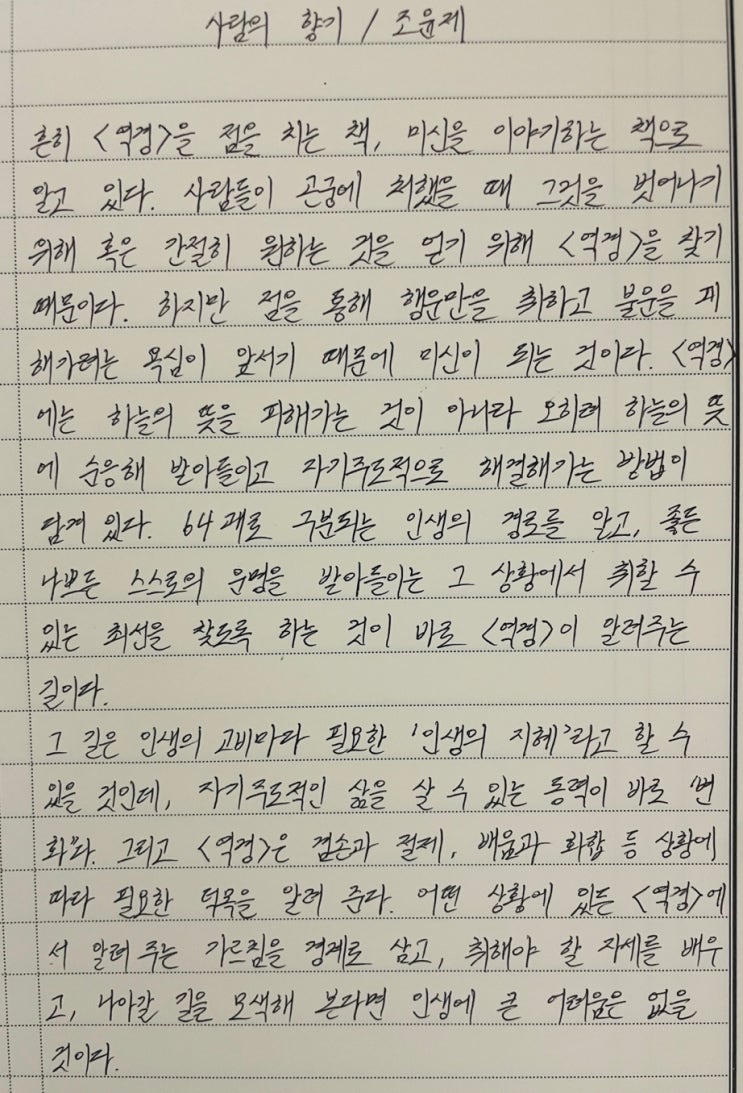 사람의 향기 / 조윤제
흔히 <역경>을 점을 치는 책, 미신을 이야기하는 책으로
알고 있다. 사람들이 곤궁에 처했을 때 그것을 벗어나기
위해 혹은 간절히 원하는 것을 얻기 위해 <역경>을 찾기
때문이다. 하지만 점을 통해 행운만을 취하고 불운을 피
해가려는 욕심이 앞서기 때문에 미신이 되는 것이다. <역경>
에는 하늘의 뜻을 피해가는 것이 아니라 오히려 하늘의 뜻
에 순응해 받아들이고 자기주도적으로 해결해가는 방법이
담겨 있다. 64괘로 구분되는 인생의 경로를 알고, 좋든
나쁘든 스스로의 운명을 받아들이는 그 상황에서 취할 수
있는 최선을 찾도록 하는 것이 바로 <역경>이 알려주는
길이다.
그 길은 인생의 고비마다 필요한 '인생의 지혜'라고 할 수
있을 것인데, 자기주도적인 삶을 살 수 있는 동력이 바로 '변
화'다. 그리고 <역경>은 겸손과 절제, 배움과 화합 등 상황에
따라 필요한 덕목을 알려 준다. 어떤 상황에 있든 <역경>에
서 알려 주는 가르침을 경계로 삼고, 취해야 할 자세를 배우
고, 나아갈 길을 모색해 본다면 인생에 큰 어려움은 없을
것이다.